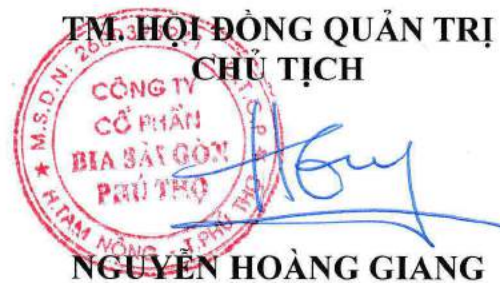 TM. HỘI ĐỒNG QUẢN TRỊ
CHỦ TỊCH
M.S.D.N: 260
C.T.C.P
CÔNG TY
CỔ PHẦN
BIA SÀI GÒN
PHÚ THỌ
H.TAM NÔNG - T.PHÚ THỌ
NGUYỄN HOÀNG GIANG